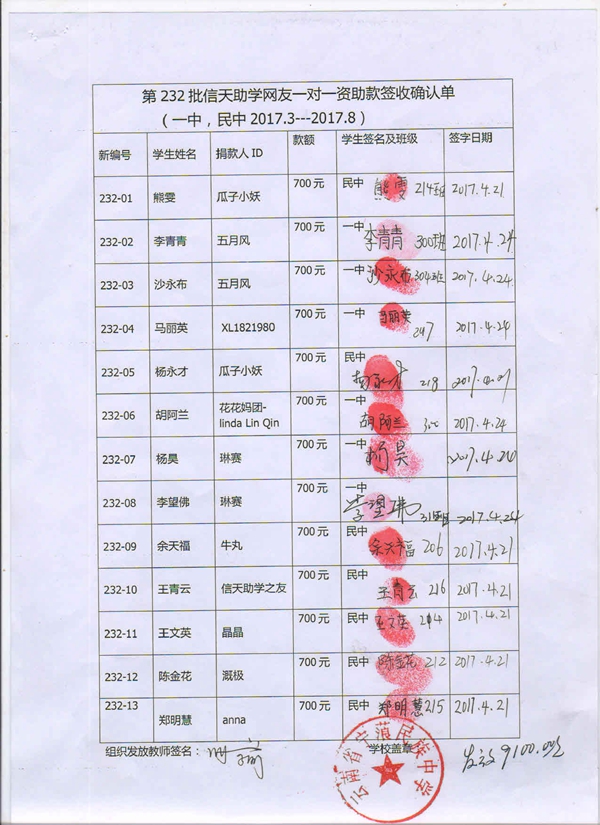 第 232 批信天助学网友一对一资助款签收确认单
（一中，民中 2017.3---2017.8）
新编号 学生姓名 捐款人 ID 款额 学生签名及班级 签字日期
232-01 熊雯 瓜子小妖 700 元 民中 熊雯 214班 2017.4.21
232-02 李青青 五月风 700 元 一中 李青青 300班 2017.4.24
232-03 沙永布 五月风 700 元 一中 沙永布 304班 2017.4.24
232-04 马丽英 XL1821980 700 元 一中 马丽英 297 2017.4.24
232-05 杨永才 瓜子小妖 700 元 民中 杨永才 218
232-06 胡阿兰 花花妈团- 700 元 一中 胡阿兰 300 2017.4.24
linda Lin Qin
232-07 杨昊 琳赛 700 元 一中 杨昊 2017.4.24
232-08 李望佛 琳赛 700 元 一中 李望佛 2017.4.24
232-09 余天福 牛丸 700 元 民中 余天福 206 2017.4.21
232-10 王青云 信天助学之友 700 元 民中 王青云 216 2017.4.21
232-11 王文英 晶晶 700 元 民中 王文英 214 2017.4.21
232-12 陈金花 溉极 700 元 民中 陈金花 212 2017.4.21
232-13 郑明慧 anna 700 元 民中 郑明慧 215 2017.4.21
组织发放教师签名： 学校盖章 发放9100.00元
云南省宁蒗民族中学